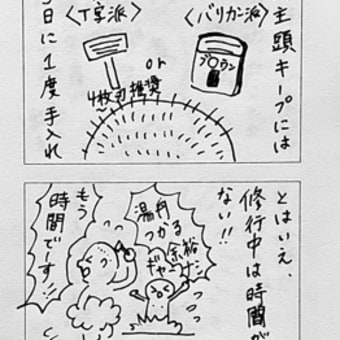 主頭キープには
〈バリカン派〉
〈T字派〉
or
4枚刃推奨
日に1度手入れ
とはいえ、
修行中は時間が
ない!!
つかる
余裕
もう
時間でーす!!